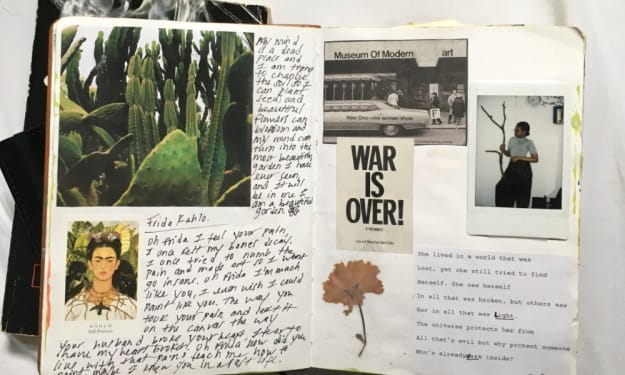 My mind
is a dead
place and
I am trying
to change
the soil so I
can plant
seeds and
beautiful
flowers can
blossom and
my mind can
turn into the
most beautiful
garden I have
ever seen
and it will
be in me I
am a beautiful
garden.
Frida Kahlo.
Oh Frida I feel your pain,
I once felt my bones decay.
I once tried to name the
pain and made art so I wont
go insane. Oh Frida I'm much
like you, I even wish I could
paint like you. The way you
took your pain and left it
on the canvas the way
your husband broke your heart. I too
have my heart broken. Oh Frida how did you
live with that pain teach me how to
I knew you in a past life.
KAHLO
Self-Portrait
Museum Of Modern art
Yoko Ono—one woman show
WAR
IS
OVER!
IF YOU WANT IT
She lived in a world that was
Lost, yet she still tried to find
Herself. She saw herself
In all that was broken, but others saw
Her in all that was Light.
The universe protects her from
All that's evil but why protect someone
Who's already dark inside?